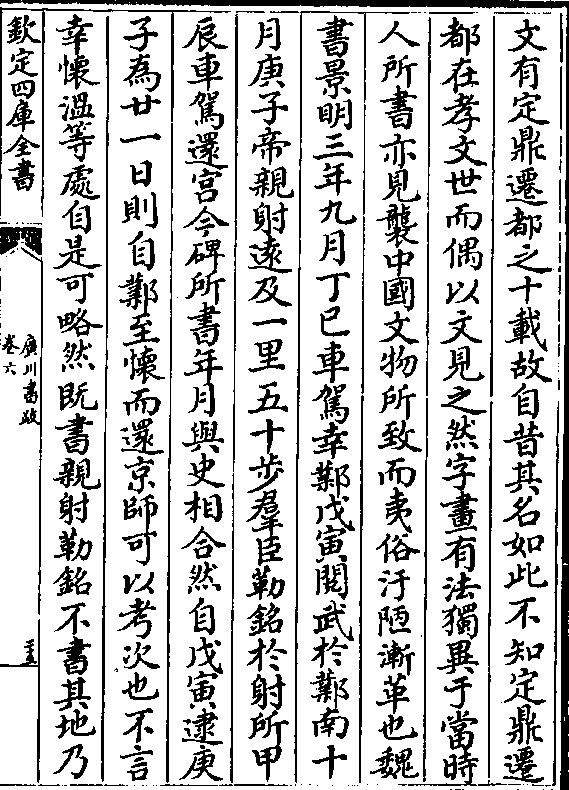 文有定鼎遷都之十載故自昔其名如此不知定鼎遷
都在孝文世而偶以文見之然字畫有法獨異于當時
人所書亦見襲中國文物所致而夷俗汙陋漸革也魏
書景明三年九月丁巳車駕幸鄴戊寅閱武於鄴南十
月庚子帝親射遠及一里五十步羣臣勒銘於射所甲
辰車駕還宮今碑所書年月與史相合然自戊寅逮庚
子為廿一日則自鄴至懷而還京師可以考次也不言
幸懷溫等處自是可略然既書親射勒銘不書其地乃
欽定四庫全書
廣川書跋
卷六